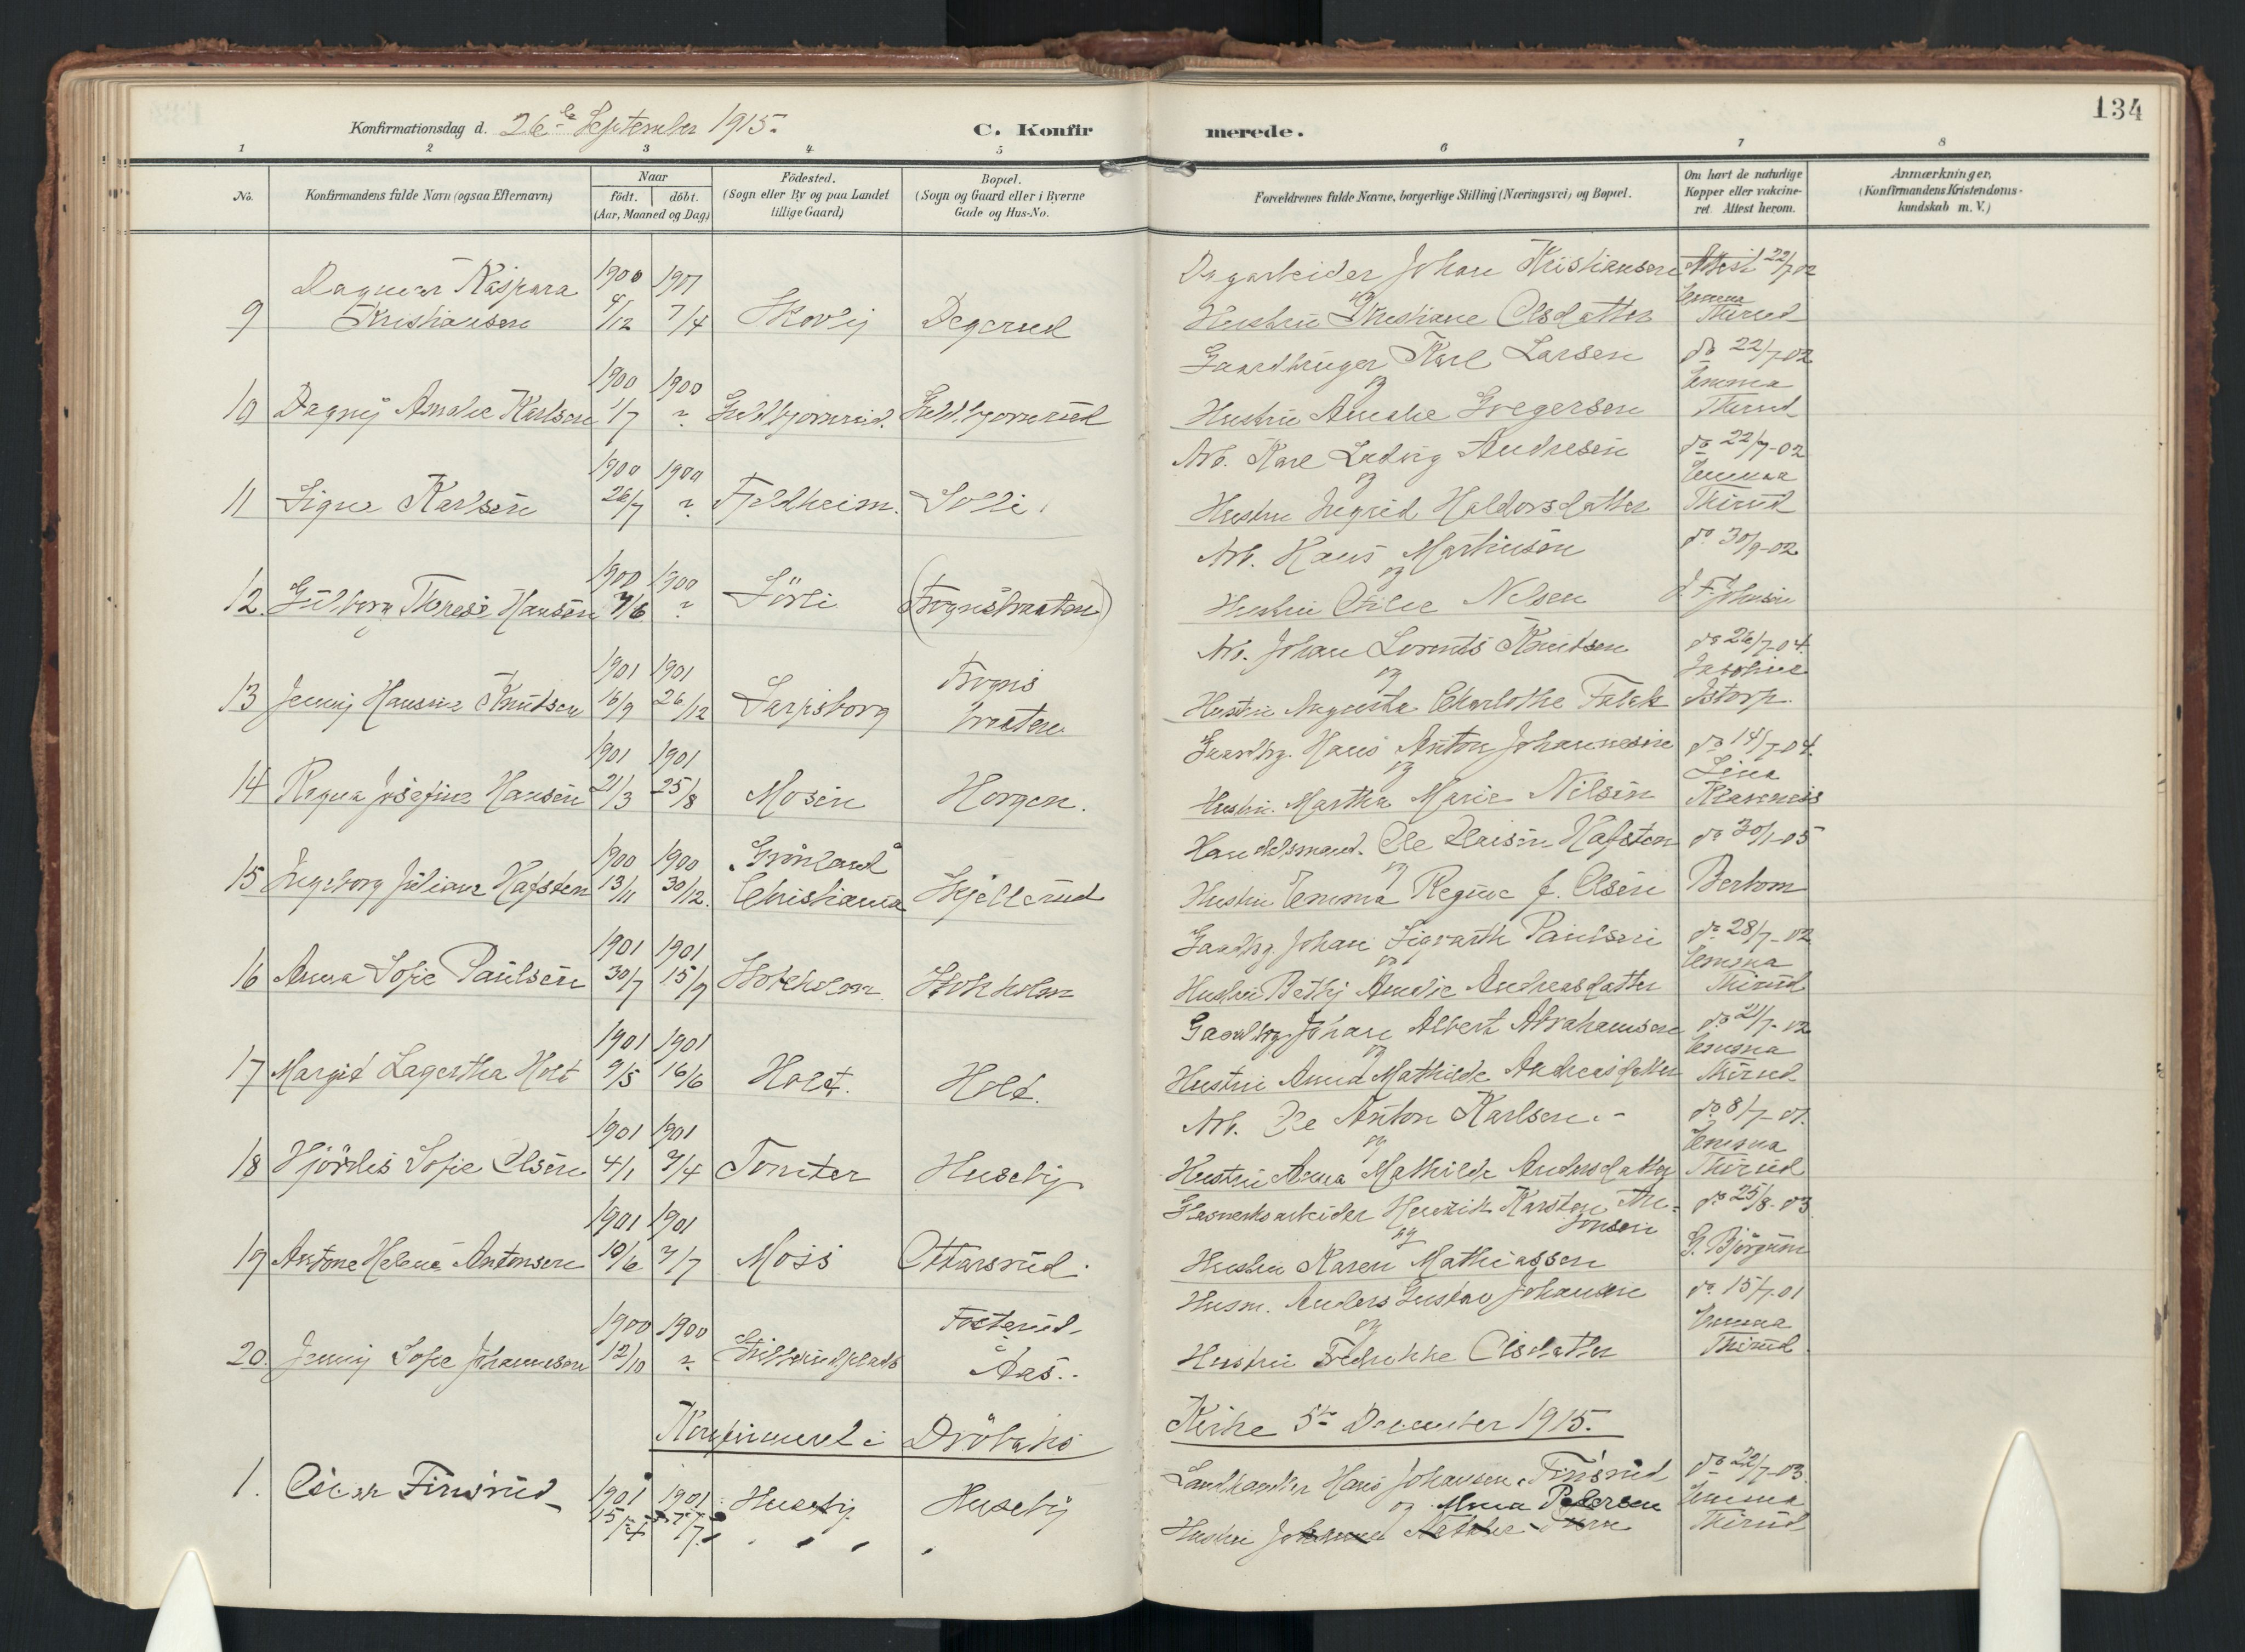 134
Konfirmationsdag d. 26de September 1915.
C. Konfirmerede.
1 2 3 4 5 6 7 8
No.
Konfirmandens fulde Navn (ogsaa Efternavn)
Naar
födt. döbt.
(Aar, Maaned og Dag)
Födested.
(Sogn eller By og paa Landet
tillige Gaard)
Bopæl.
(Sogn og Gaard eller i Byerne
Gade og Hus-No.
Forældrenes fulde Navne, borgerlige Stilling (Næringsvei) og Bopæl.
Om havt de naturlige
Kopper eller vakcine-
ret. Attest herom.
Anmærkninger,
(Konfirmandens Kristendoms-
kundskab m. V.)
Dagmar Kaspara 1900 1901 Dagarbeider Johan Kristiansen Attest 22/7 02
og Emma
9 Kristiansen 4/12 7/4 Skovly Degerud Hustru Kristiane Olsdatter Thirud
1900 1900 Gaardbruger Karl Larsen do 22/7-02
og Emma
10 Dagny Amalie Karlsen 1/7 ? Guldbjørnerud. Guldbjørnerud Hustru Amalie Gregersen Thirud
1900 1900 Arb. Karl Ludvig Andresen do 22/7-02
og Emma
11 Signe Karlsen 26/7 ? Fjeldheim. Solli. Hustru Ingrid Haldorsdatter Thirud
1900 1900 Arb. Hans Martinsen do 30/9-02
og
12. Gulborg Therese Hansen 7/6 ? Sörli (Frognsbraaten) Hustru Nilsen J. F. Johnsen
1901 1901 Arb. Johan Lorents Knutsen do 26/7-04.
og
13 Jenny Hansine Knutsen 16/9 26/12 Sarpsborg Frogns braaten. Hustru Augusta Charlothe Falck Istorp.
1901 1901 Gaardbg. Hans Anton Johannesen do 14/7-04.
og Lina
14 Ragna Josefine Hansen 21/3 25/8 Mosen Horgen. Hustru. Martha Marie Nilsen Klavenæs
1900 1900 Grönland Handelsmand. Ole Hafsten do 30/1-05
og
15 Ingeborg Juliane Hafsten 13/11 30/12. Christiania Skjellerud Hustru Emma Regine f. Olsen Berbom
1901 1901 Gaardbg. Johan Sigvarth Paulsen do 28/7-02
og Emma
16 Anna Sofie Paulsen 30/7 15/9 Stokholm Stokholm Hustru Bethy Amalie Andreasdatter Thirud
1901 1901 Gaardbrg. Johan Albert Abrahamsen do 21/7-02
og Emma
17 Margit Lagertha Holt 9/5 16/6 Holt. Holt. Hustru Anna Mathilde Andreasdatter Thirud
1901 1901 Arb. Ole Anton Karlsen. do 8/7-01.
og Emma
18 Hjördis Sofie Olsen 4/1 7/4 Tomter Huseby Hustru Anna Mathilde Andersdatter Thirud
1901 1901 Glasverksarbeider Henrik Karsten An- do 25/8-03.
tonsen
og
19 Antone Helene Antonsen 10/6 7/7 Moss Ottarsrud. Hustru Karen Mathiassen G. Björgum
1900 1900 Fosterud Husm. Anders Gustav Johansen do 15/7-01
og Emma
20. Jenny Sofie Johannesen 12/10 ? Aas. Hustru Fredrikke Olsdatter Thirud
Konfirmert i Dröbaks Kirke 5te December 1915.
1. Oscar Finsrud 1901 1901 Huseby Huseby Landhandler Hans Johansen Finsrud do 22/7-03.
15/4 7/7 og Alma Petersen Emma
Hustru Thirud